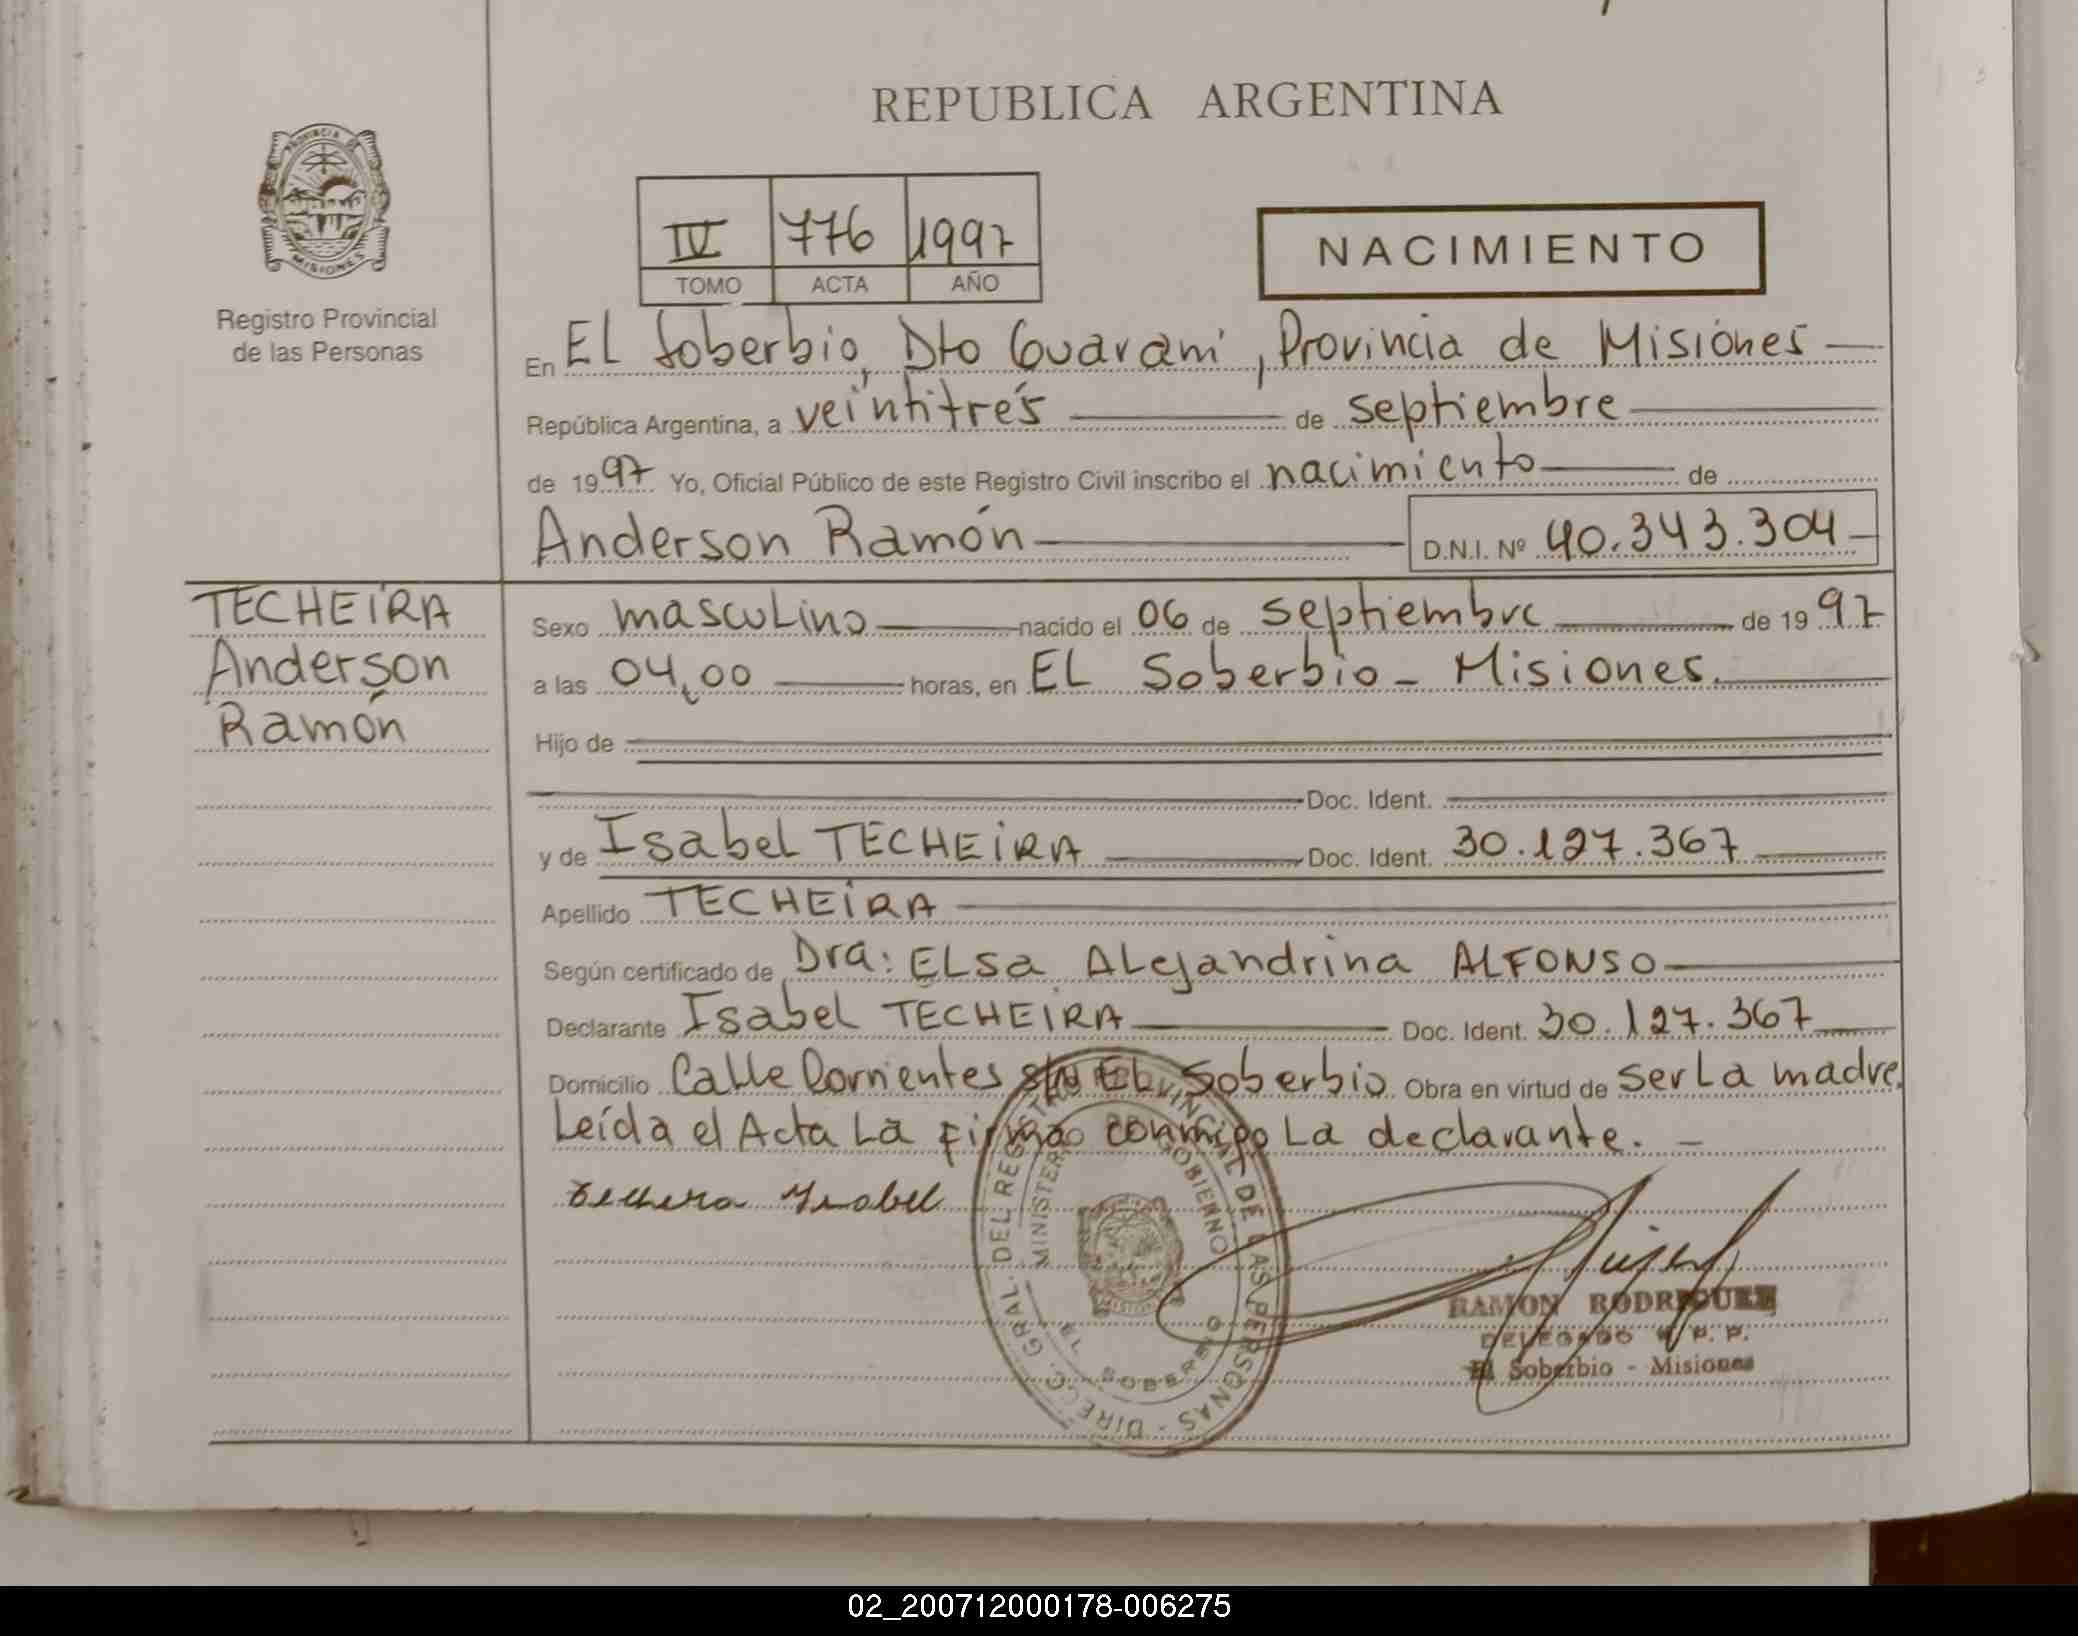 REPUBLICA ARGENTINA
PROVINCIA DE
MISIONES
Registro Provincial
de las Personas
IV 776 1997
TOMO ACTA AÑO
NACIMIENTO
En EL Soberbio, Dto Guaraní, Provincia de Misiones
República Argentina, a veintitrés de septiembre
de 1997 Yo, Oficial Público de este Registro Civil inscribo el nacimiento de
Anderson Ramón D.N.I. Nº 40.343.304
TECHEIRA
Anderson
Ramón
Sexo masculino nacido el 06 de septiembre de 1997
a las 04,00 horas, en EL Soberbio - Misiones.
Hijo de
Doc. Ident.
y de Isabel TECHEIRA Doc. Ident. 30.127.367
Apellido TECHEIRA
Según certificado de Dra: ELSa ALejandrina ALFONSO
Declarante Isabel TECHEIRA Doc. Ident. 30.127.367
Domicilio Calle Corrientes s/n EL Soberbio Obra en virtud de ser La madre.
Leída el Acta La firma conmigo La declarante. -
Isabel
DIRECC. GRAL. DEL REGISTRO PROVINCIAL DE LAS PERSONAS
MINISTERIO GOBIERNO
SOBERBIO
RAMON RODRIGUEZ
DELEGADO R. P. P.
El Soberbio - Misiones
02_200712000178-006275